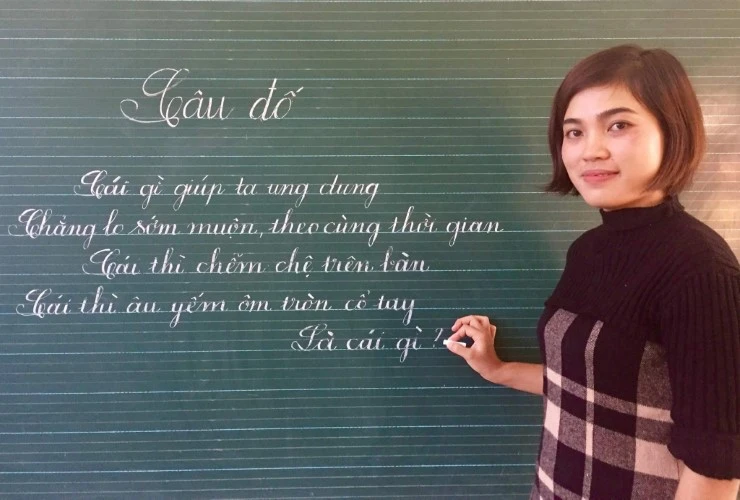 Câu đố
Cái gì giúp ta ung dung
Chẳng lo sớm muộn, theo cùng thời gian
Cái thì chễm chệ trên bàn
Cái thì âu yếm ôm tròn cổ tay
Là cái gì ?